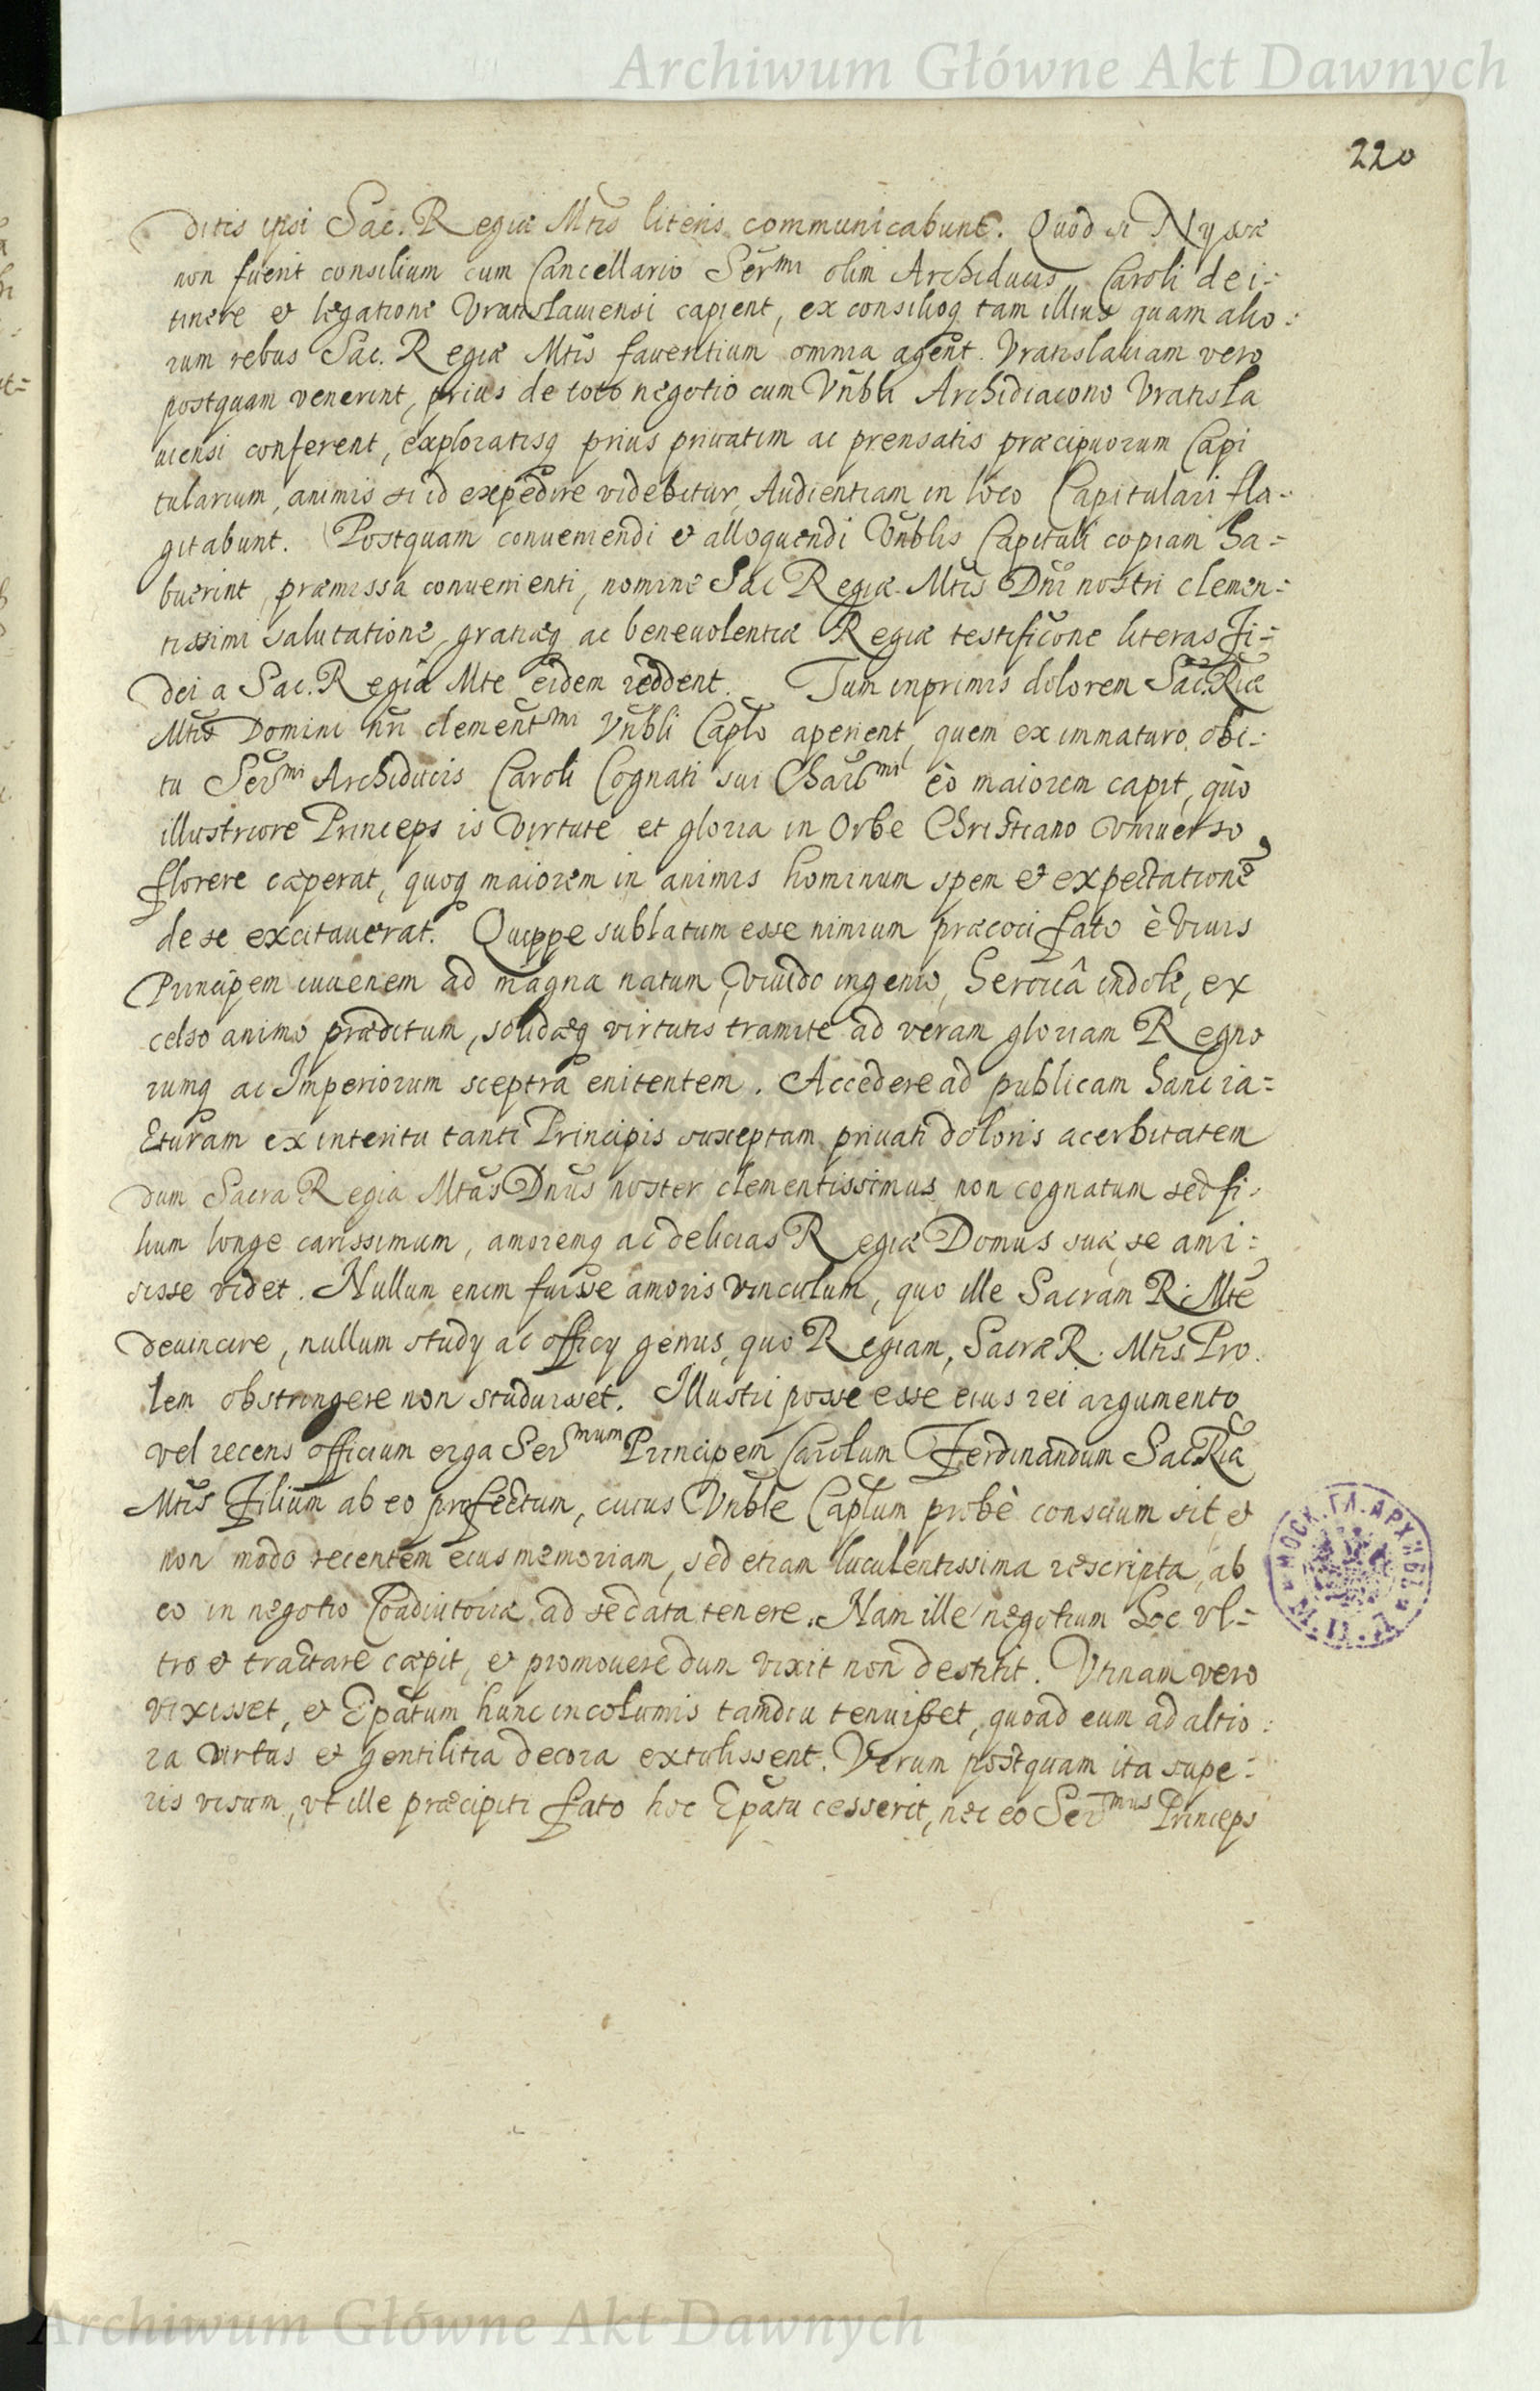 Archiwum Główne Akt Dawnych
220
ditis ipsi Sac. Regiæ Mtis literis communicabunt. Quod si Nyssæ
non fuerit consilium cum Cancellario Sermi olim Archiducis Caroli de i=
tinere et legatione Vratislauiensi capient, ex consilioq tam illius quam alio=
rum rebus Sac. Regiæ Mtis fauentium omnia agent. Vratislauiam vero
postquam venerint, prius de toto negotio cum Vnbli Archidiacono Vratisla
uiensi conferent, exploratisq prius priuatim ac prensatis præcipuorum Capi
tularium, animis si id expedire videbitur, Audientiam in loco Capitulari fla=
gitabunt. Postquam conueniendi et alloquendi Vnblis Capituli copiam ha=
buerint, præmissa conuenienti, nomine Sac Regiæ Mtis Dni nostri clemen=
tissimi salutatione, gratiæq ac beneuolentiæ Regiæ testificone literas Fi=
dei a Sac. Regia Mte eidem reddent. Tum inprimis dolorem Sac. Riæ
Mtis Domini nri clementmi Vnbli Caplo aperient, quem ex immaturo obi=
tu Sermi Archiducis Caroli Cognati sui Charismi eò maiorem capit, quò
illustriore Princeps is virtute et gloria in Orbe Christiano vniuerso
florere cæperat, quoq maiorem in animis hominum spem et expectatione
de se excitauerat. Quippe sublatum esse nimium præcoci fato è viuis
Principem iuuenem ad magna natum, viuido ingenio, heroicâ indole, ex
celso animo præditum, solidæq virtutis tramite ad veram gloriam Regno
rumq ac Imperiorum sceptra enitentem. Accedere ad publicam hanc ia=
cturam ex interitu tanti Principis susceptam priuati doloris acerbitatem
dum Sacra Regia Mtas Dnus noster clementissimus non cognatum sed fi=
lium longe carissimum, amoremq ac delicias Regiæ Domus suæ se ami=
sisse videt. Nullum enim fuisse amoris vinculum, quo ille Sacram R. Mte
deuincire, nullum study ac officy genus, quo Regiam, Sacræ R. Mtis Pro
lem obstringere non studuisset. Illustri posse esse eius rei argumento
vel recens officium erga Sermum Principem Carolum Ferdinandum Sac Riæ
Mtis Filium ab eo profectum, cuius Vnble Caplum probè conscium sit et
non modo recentem eius memoriam, sed etiam luculentissima rescripta, ab
eo in negotio Coadiutoriæ ad se data tenere. Nam ille negotium hoc vl=
tro et tractare cæpit, et promouere dum vixit non destitit. Vtinam vero
vixisset, et Epatum hunc incolumis tamdiu tenuisset, quoad eum ad altio=
ra virtus et gentilitia decora extulissent. Verum postquam ita supe=
ris visum, vt ille præcipiti fato hoc Epatu cesserit, nec eo Sermus Princeps
МОСК. ГЛ. АРХИВЪ
Archiwum Główne Akt Dawnych